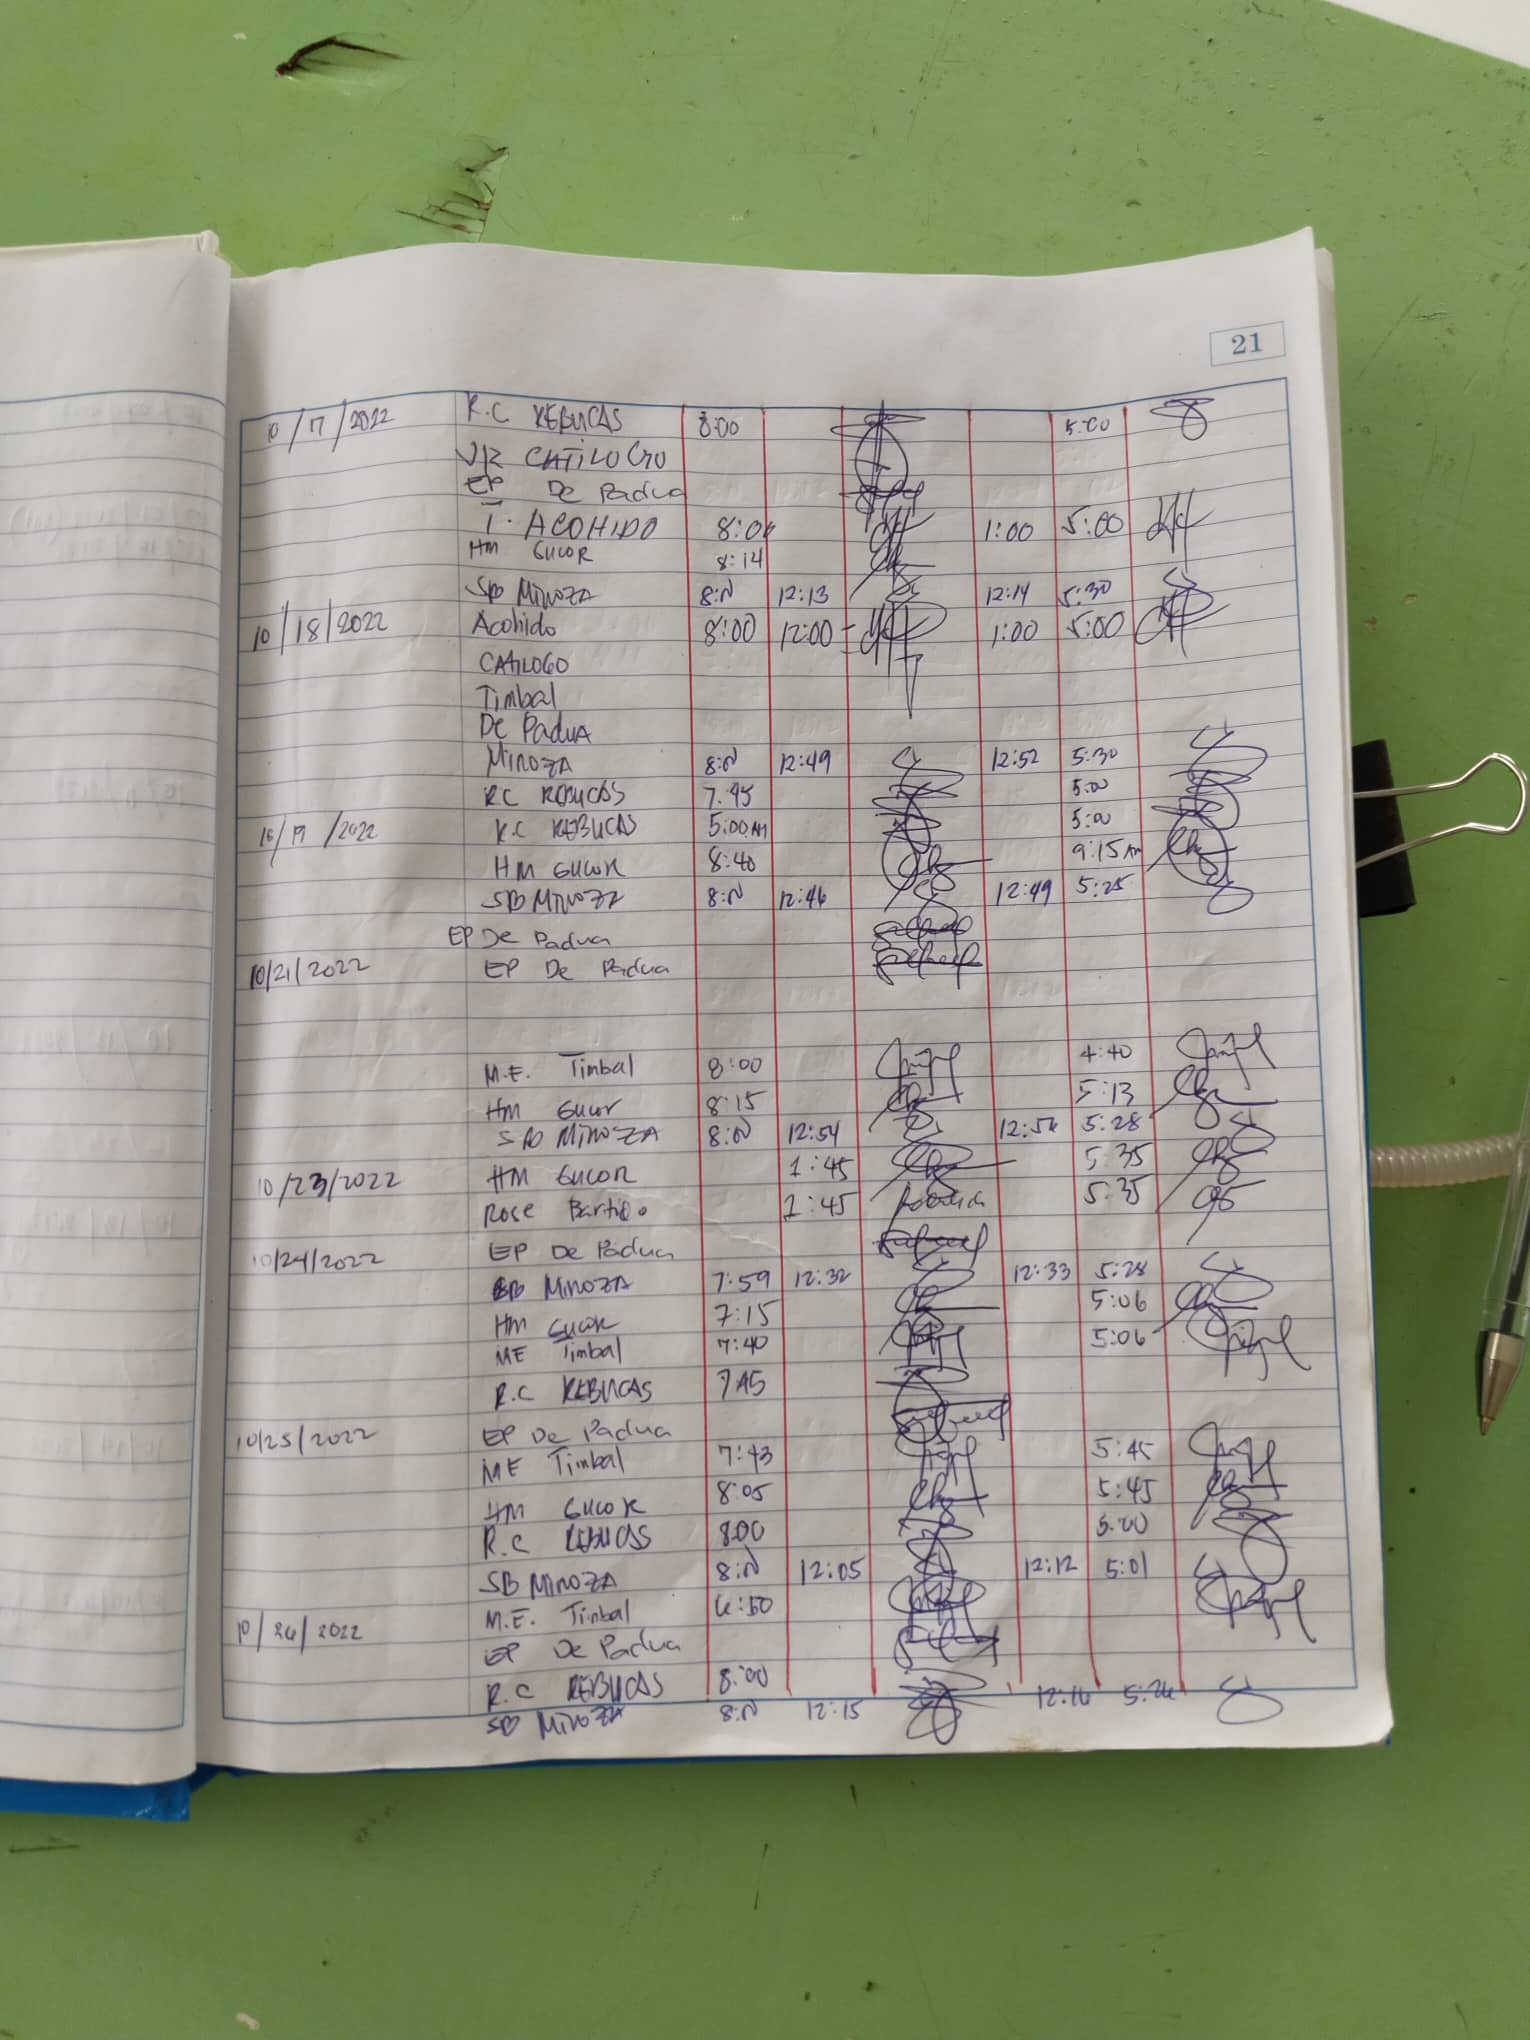 21
10/17/2022 R.C REBUCAS 8:00 5:00
CATILOGO
EP De Padua
T. ACOHIDO 8:00 1:00 5:00
HM GUCOR 8:14
SB MINOZA 8:N 12:13 12:14 5:30
10/18/2022 Acohido 8:00 12:00 1:00 5:00
CATILOGO
Timbal
De PADUA
MINOZA 8:N 12:49 12:52 5:30
RC REBUCAS 7:45 5:00
10/19/2022 R.C REBUCAS 5:00AM 5:00
HM GUCOR 8:40 9:15 AM
SB MINOZA 8:N 12:46 12:49 5:25
EP De Padua
10/21/2022 EP De Padua
M.E. Timbal 8:00 4:40
HM Gucor 8:15 5:13
SB MINOZA 8:N 12:54 12:56 5:28
10/23/2022 HM GUCOR 1:45 5:35
Rose 1:45 5:35
10/24/2022 EP De Padua
SB MINOZA 7:59 12:32 12:33 5:28
HM GUCOR 7:15 5:06
ME Timbal 7:40 5:06
R.C REBUCAS 7:45
10/25/2022 EP De Padua
ME Timbal 7:43 5:45
HM GUCOR 8:05 5:45
R.C REBUCAS 8:00 5:00
SB MINOZA 8:N 12:05 12:12 5:01
10/26/2022 M.E. Timbal
EP De Padua
R.C REBUCAS 8:00
SB MINOZA 8:N 12:15 12:16 5:26